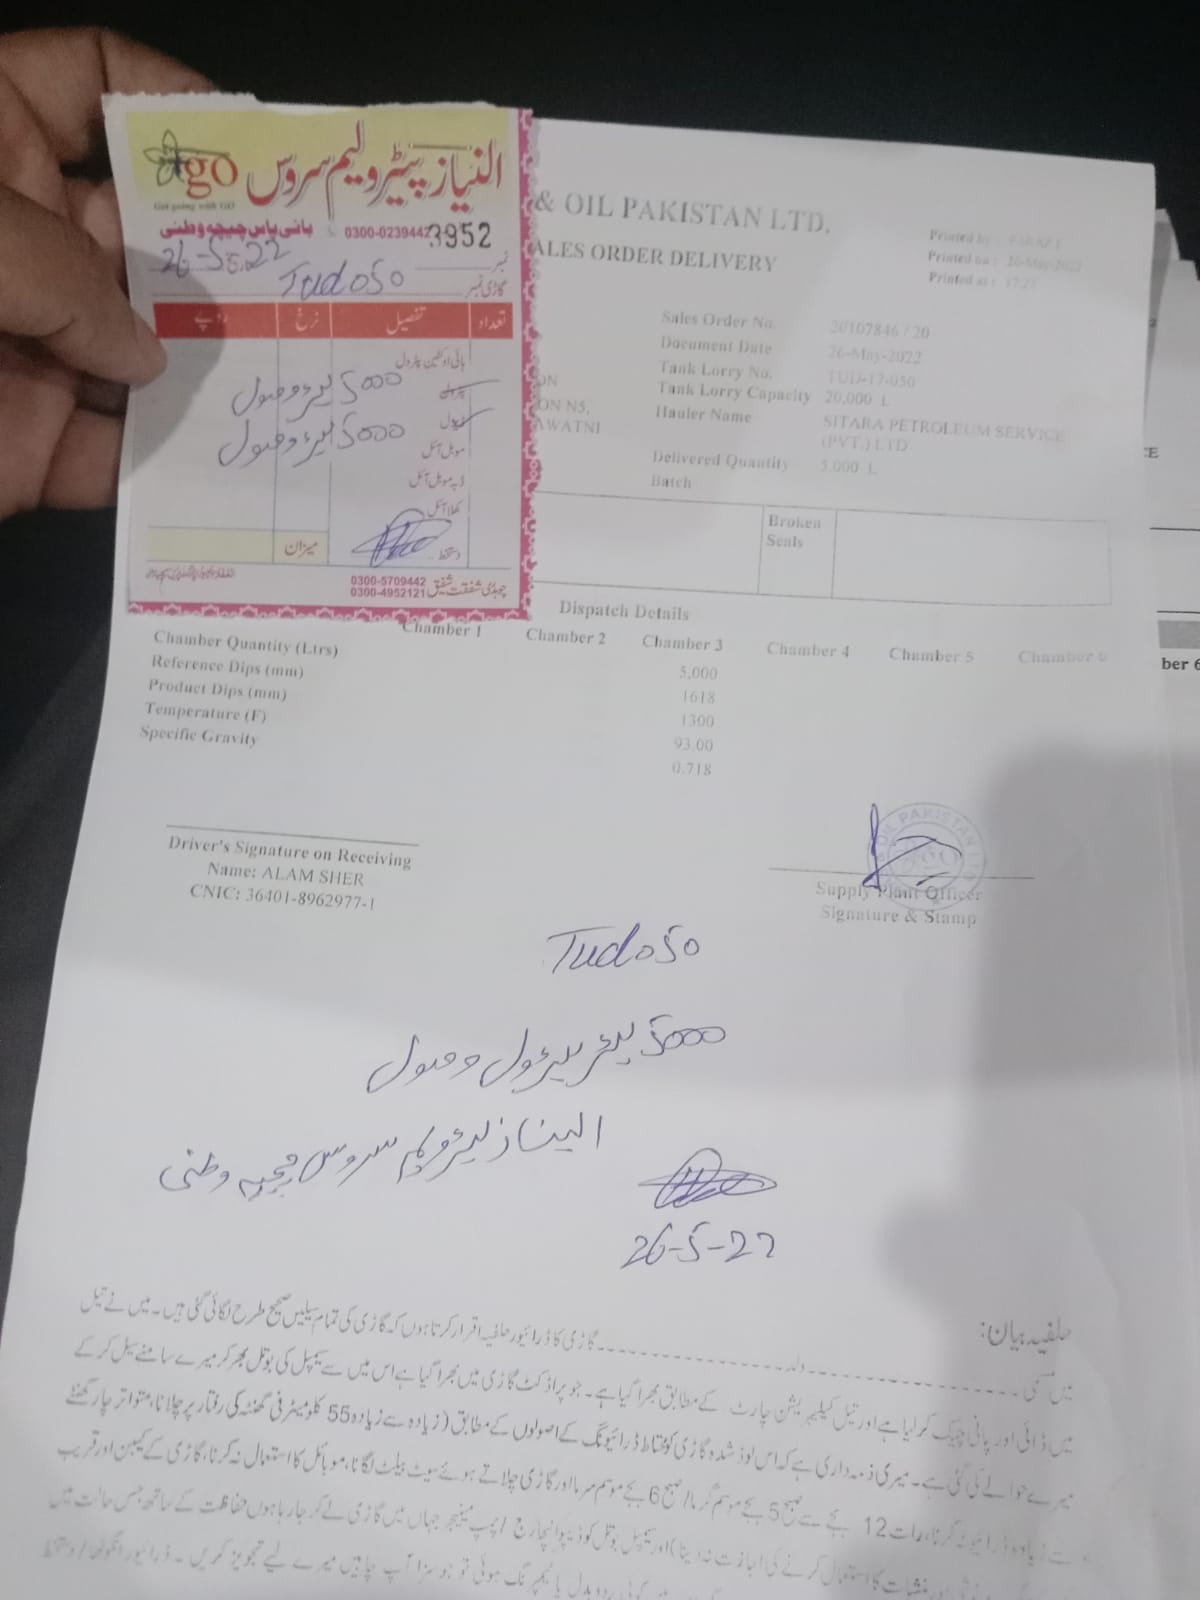 go
النیاز پیٹرولیم سروس
Get going with GO
بائی پاس چیچہ وطنی
0300-0239442
3952
نمبر
26-5-22
گاڑی نمبر
Tud050
تعداد تفصیل نرخ روپے
ہائی اوکٹین پٹرول
پٹرول 5000 لیٹر وصول
ڈیزل 5000 لیٹر وصول
موبل آئل
ڈبہ موبل آئل
کھلا آئل
میزان
دستخط
چوہدری شفقت شفیق
0300-5709442
0300-4952121
& OIL PAKISTAN LTD.
ALES ORDER DELIVERY
Printed by :
Printed on : 26-May-2022
Printed at : 17:23
Sales Order No. 20107846 / 20
Document Date 26-May-2022
Tank Lorry No. TUD-17-050
Tank Lorry Capacity 20,000 L
Hauler Name SITARA PETROLEUM SERVICE (PVT.) LTD
ON
ON N5,
AWATNI
Delivered Quantity 5,000 L
Batch
Broken Seals
Dispatch Details
Chamber 1 Chamber 2 Chamber 3 Chamber 4 Chamber 5 Chamber 6
Chamber Quantity (Ltrs) 5,000
Reference Dips (mm) 1618
Product Dips (mm) 1300
Temperature (F) 93.00
Specific Gravity 0.718
Driver's Signature on Receiving
Name: ALAM SHER
CNIC: 36401-8962977-1
OIL PAKISTAN LTD
Supply Plant Officer
Signature & Stamp
Tud050
5000 لیٹر پیٹرول وصول
النیاز پیٹرولیم سروس چیچہ وطنی
26-5-22
حلفیہ بیان:
میں مسمی ۔۔۔۔۔۔ ولد ۔۔۔۔۔۔ گاڑی کا ڈرائیور حلفیہ اقرار کرتا ہوں کہ گاڑی کی تمام سیلیں صحیح طرح لگائی گئی ہیں۔ میں نے تیل
میں ڈائی اور پانی چیک کر لیا ہے اور تیل کیلیبریشن چارٹ کے مطابق بھرا گیا ہے۔ جو پراڈکٹ گاڑی میں بھرا گیا ہے اس میں سے سیمپل کی بوتل بھر کر میرے سامنے سیل کر کے
میرے حوالے کی گئی ہے۔ میری ذمہ داری ہے کہ اس لوڈ شدہ گاڑی کو محتاط ڈرائیونگ کے اصولوں کے مطابق (زیادہ سے زیادہ 55 کلومیٹر فی گھنٹہ کی رفتار پر چلانا، متواتر چار گھنٹے
سے زیادہ ڈرائیو نہ کرنا، رات 12 بجے سے صبح 5 بجے موسم گرما / صبح 6 بجے موسم سرما اور گاڑی چلاتے ہوئے سیٹ بیلٹ لگانا، موبائل کا استعمال نہ کرنا، گاڑی کے کیبن اور قریب
منشیات کا استعمال کرنے کی اجازت نہ دینا) اور سیمپل بوتل کو ڈپو انچارج / پمپ مینیجر جہاں میں گاڑی لے کر جا رہا ہوں حفاظت کے ساتھ جس حالت میں
کوئی ردوبدل یا ٹیمپرنگ ہوئی تو جو سزا آپ چاہیں میرے لیے تجویز کریں۔ ڈرائیور انگوٹھا / دستخط
CE
ber 6